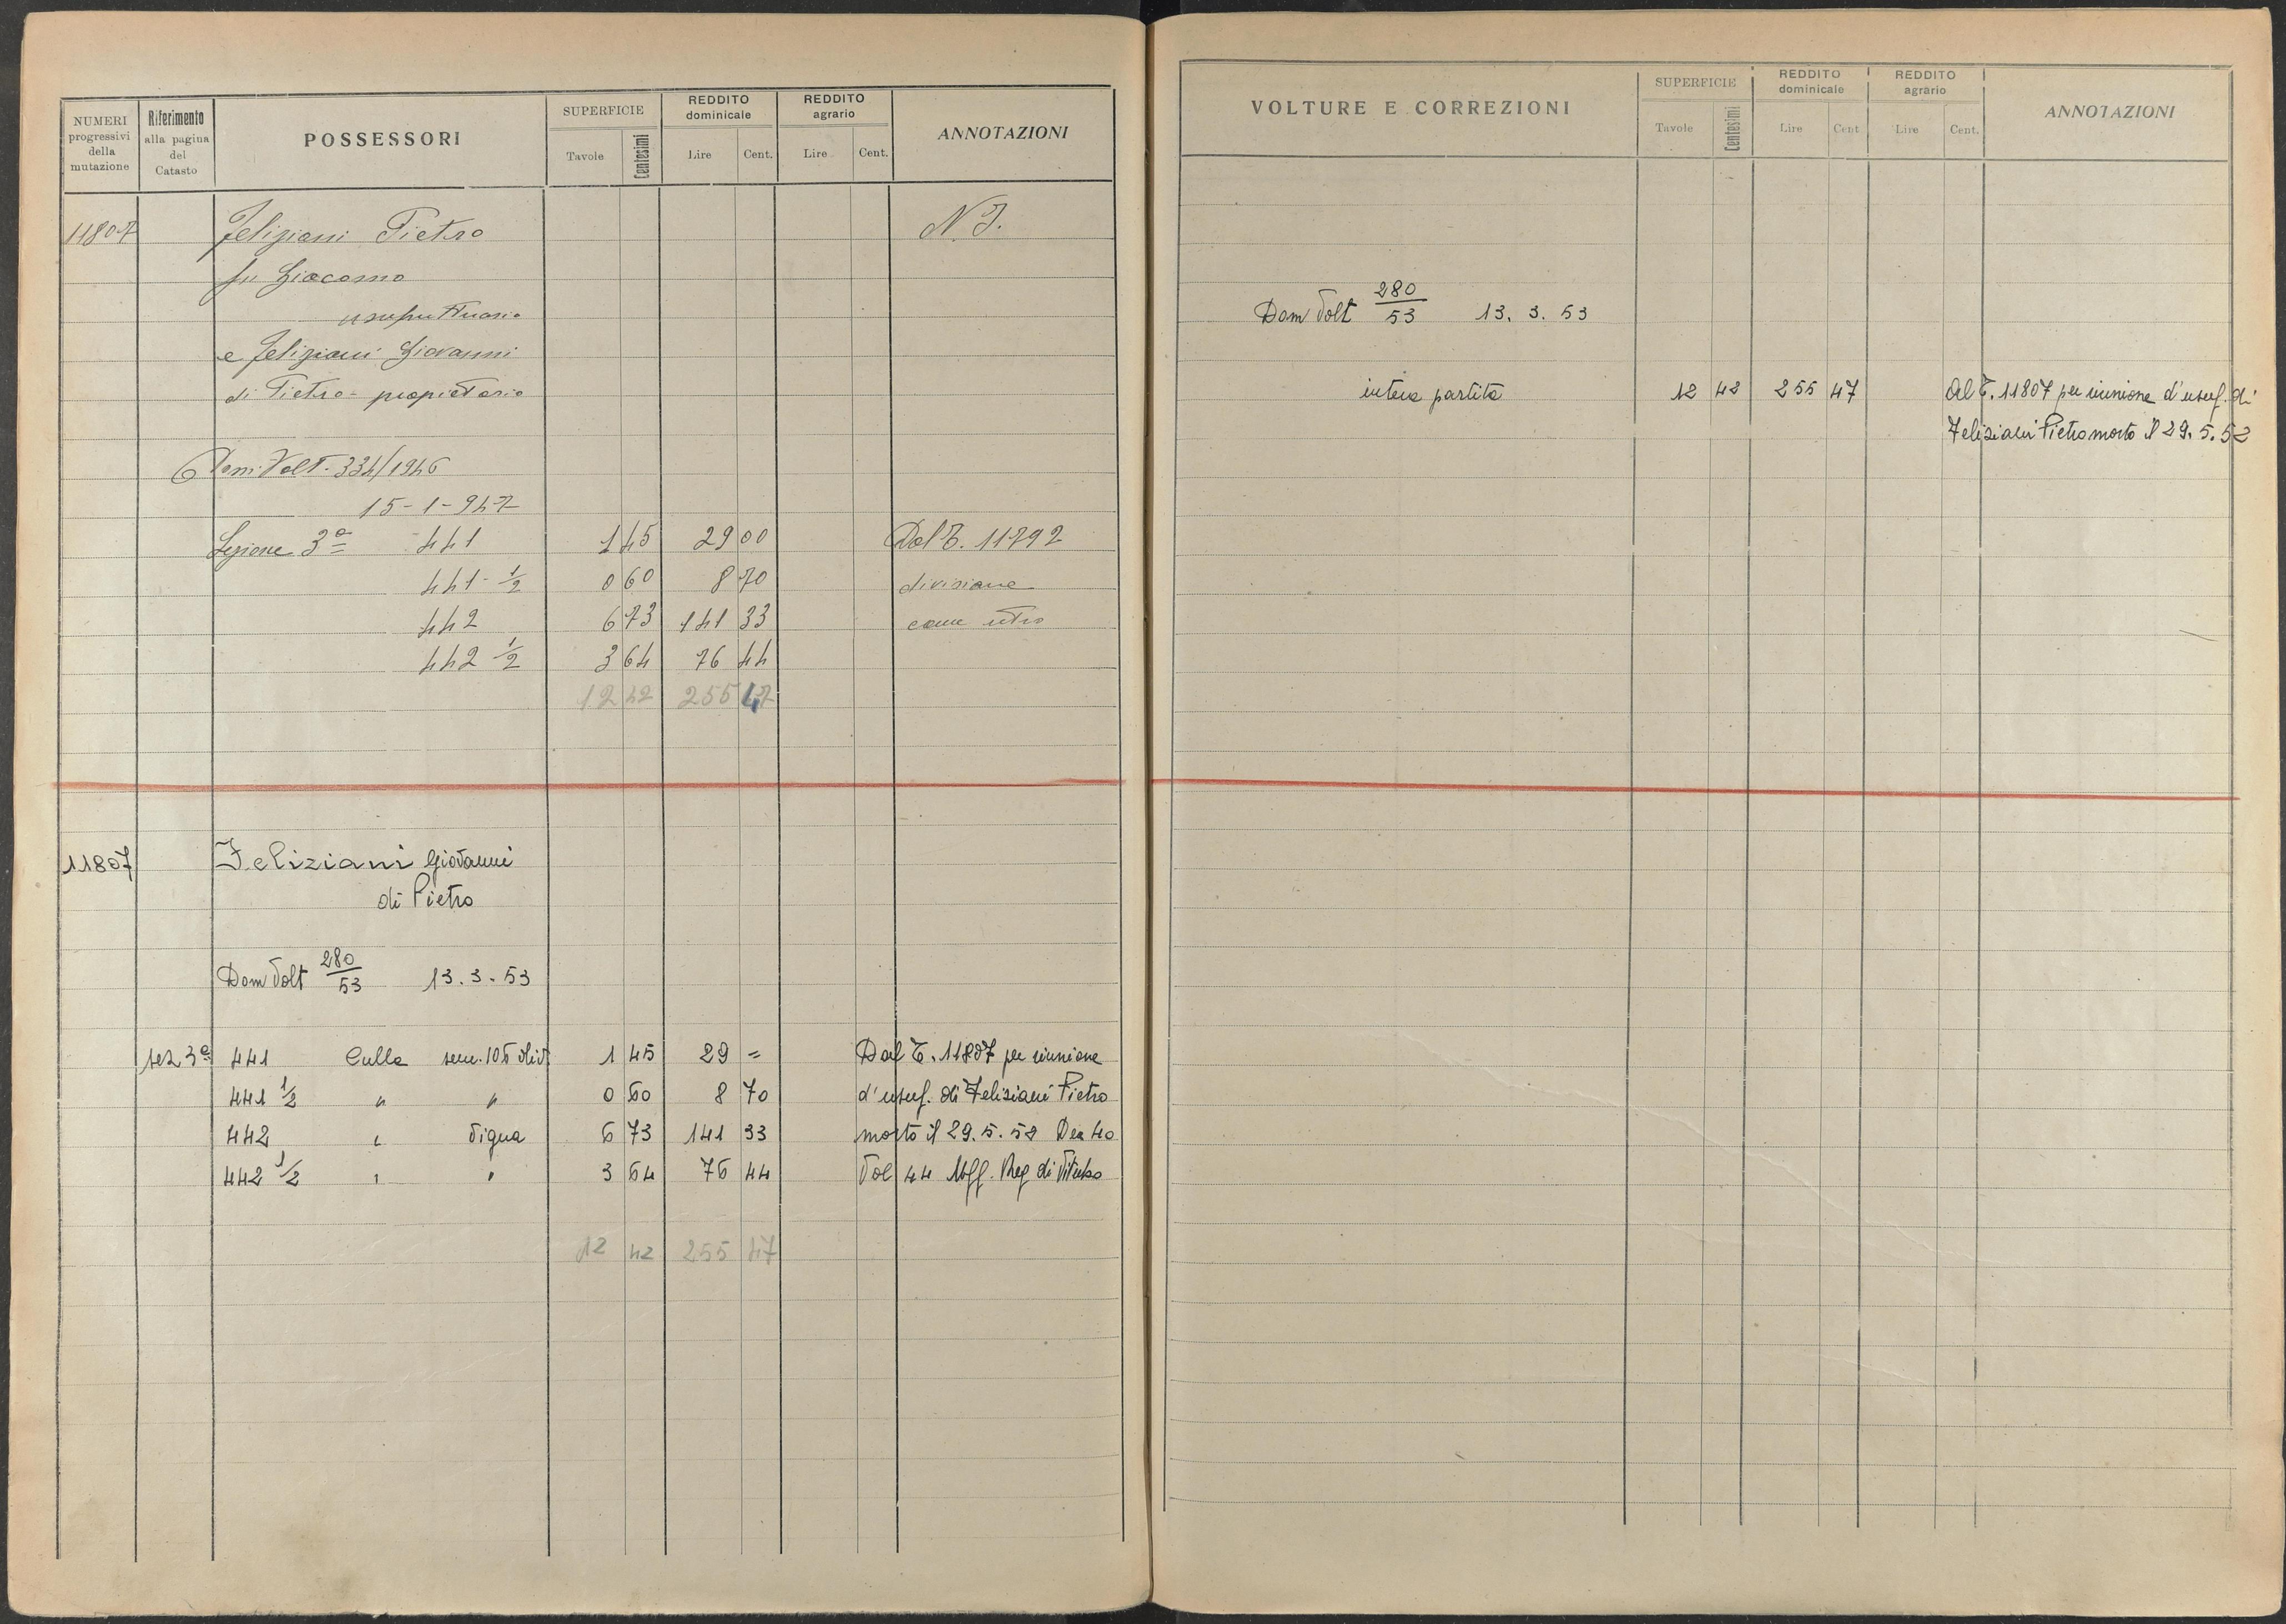 NUMERI progressivi della mutazione | Riferimento alla pagina del Catasto | POSSESSORI | SUPERFICIE Tavole Centesimi | REDDITO dominicale Lire Cent. | REDDITO agrario Lire Cent. | ANNOTAZIONI
11807 Feliziani Pietro N.I.
fu Giacomo
usufruttuario
e Feliziani Giovanni
di Pietro = propietario
Dom. Volt. 334/1946
15-1-947
Sezione 3ª 441 1 45 29 00 Dal T. 11792
441 ½ 0 60 8 70 divisione
442 6 73 141 33 come
442 ½ 3 64 76 44
12 42 255 47
11807 Feliziani Giovanni
di Pietro
Dom Volt 280/53 13.3.53
sez 3ª 441 Culla sem. oliv 1 45 29 = Dal T. 11807 per riunione
441 ½ " " 0 60 8 70 d'usuf. di Feliziani Pietro
442 " vigna 6 73 141 33 morto il 29.5.52 Den 40
442 ½ " " 3 64 76 44 Vol 44 Uff. Reg di Viterbo
12 42 255 47
VOLTURE E CORREZIONI | SUPERFICIE Tavole Centesimi | REDDITO dominicale Lire Cent | REDDITO agrario Lire Cent. | ANNOTAZIONI
Dom Volt 280/53 13. 3. 53
intera partita 12 42 255 47 Al T. 11807 per riunione d'usuf. di
Feliziani Pietro morto il 29. 5. 52